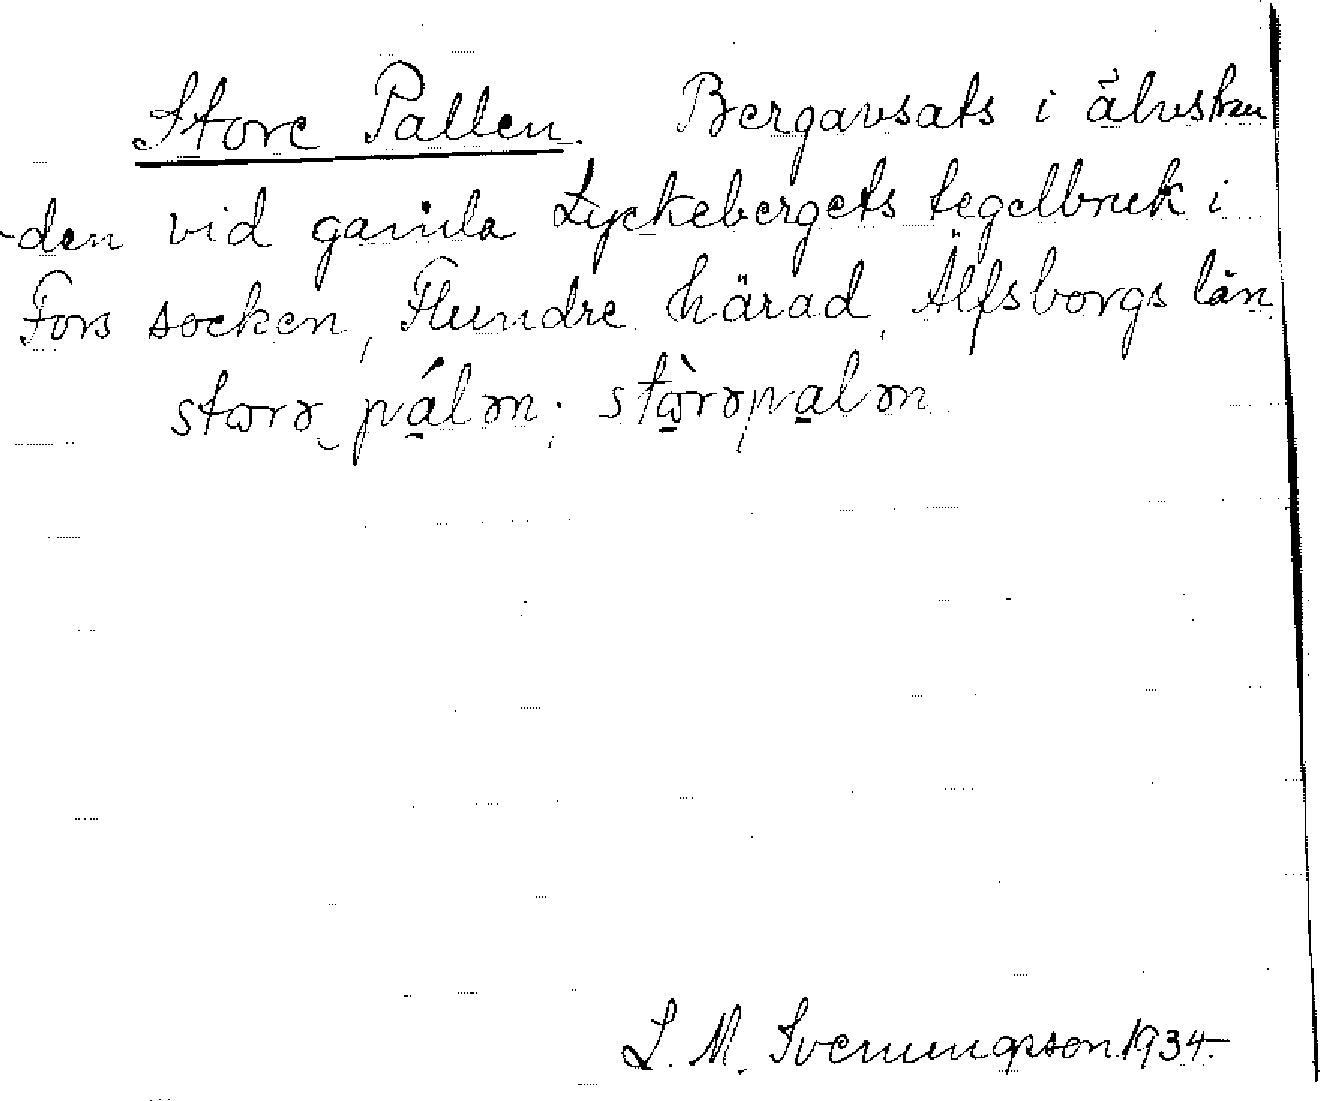 Store Pallen. Bergavsats i älvstran
-den vid gamla Lyckebergets tegelbruk i
Fors socken, Flundre härad, Älfsborgs län.
storə pálən; stòrəpalən
L. M. Svenungsson 1934.